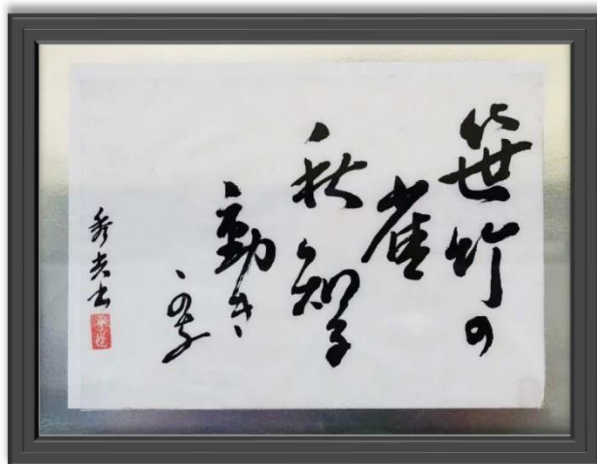 笹竹の
雀
秋知る
動き
かな